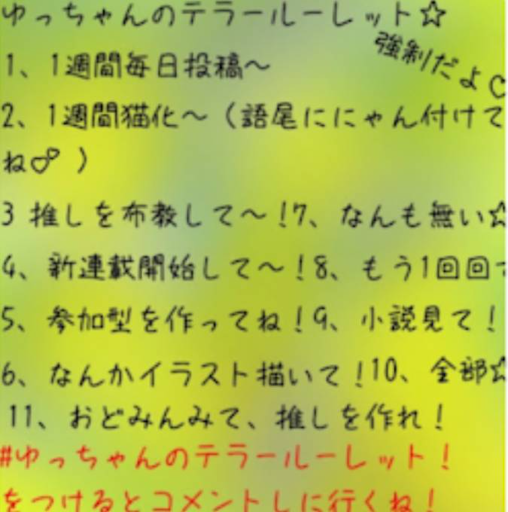 ゆっちゃんのテラールーレット☆
強制だよ
1、1週間毎日投稿〜
2、1週間猫化〜（語尾ににゃん付けて
ね♂）
3 推しを布教して〜！7、なんも無い☆
4、新連載開始して〜！8、もう1回回
5、参加型を作ってね！9、小説見て！
6、なんかイラスト描いて！10、全部☆
11、おどみんみて、推しを作れ！
#ゆっちゃんのテラールーレット！
をつけるとコメントしに行くね！